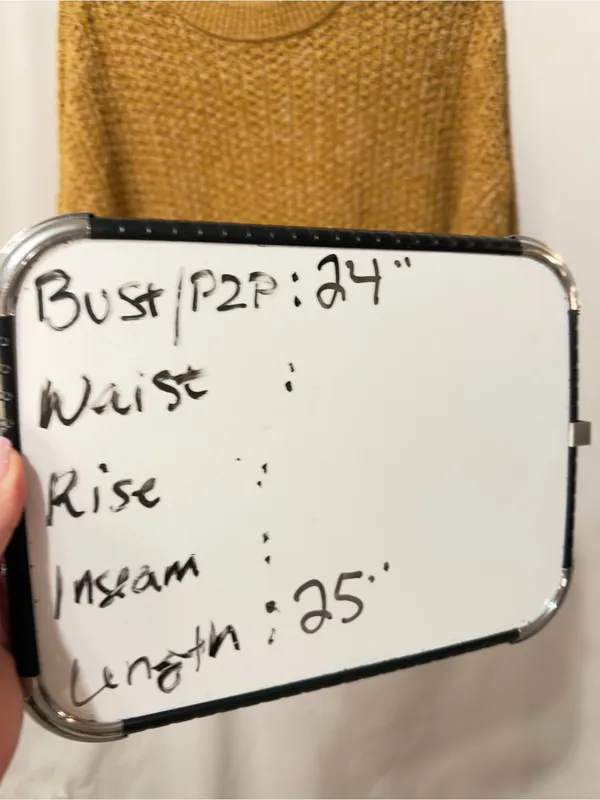 Bust/P2P : 24"
Waist :
Rise :
Inseam :
Length : 25"